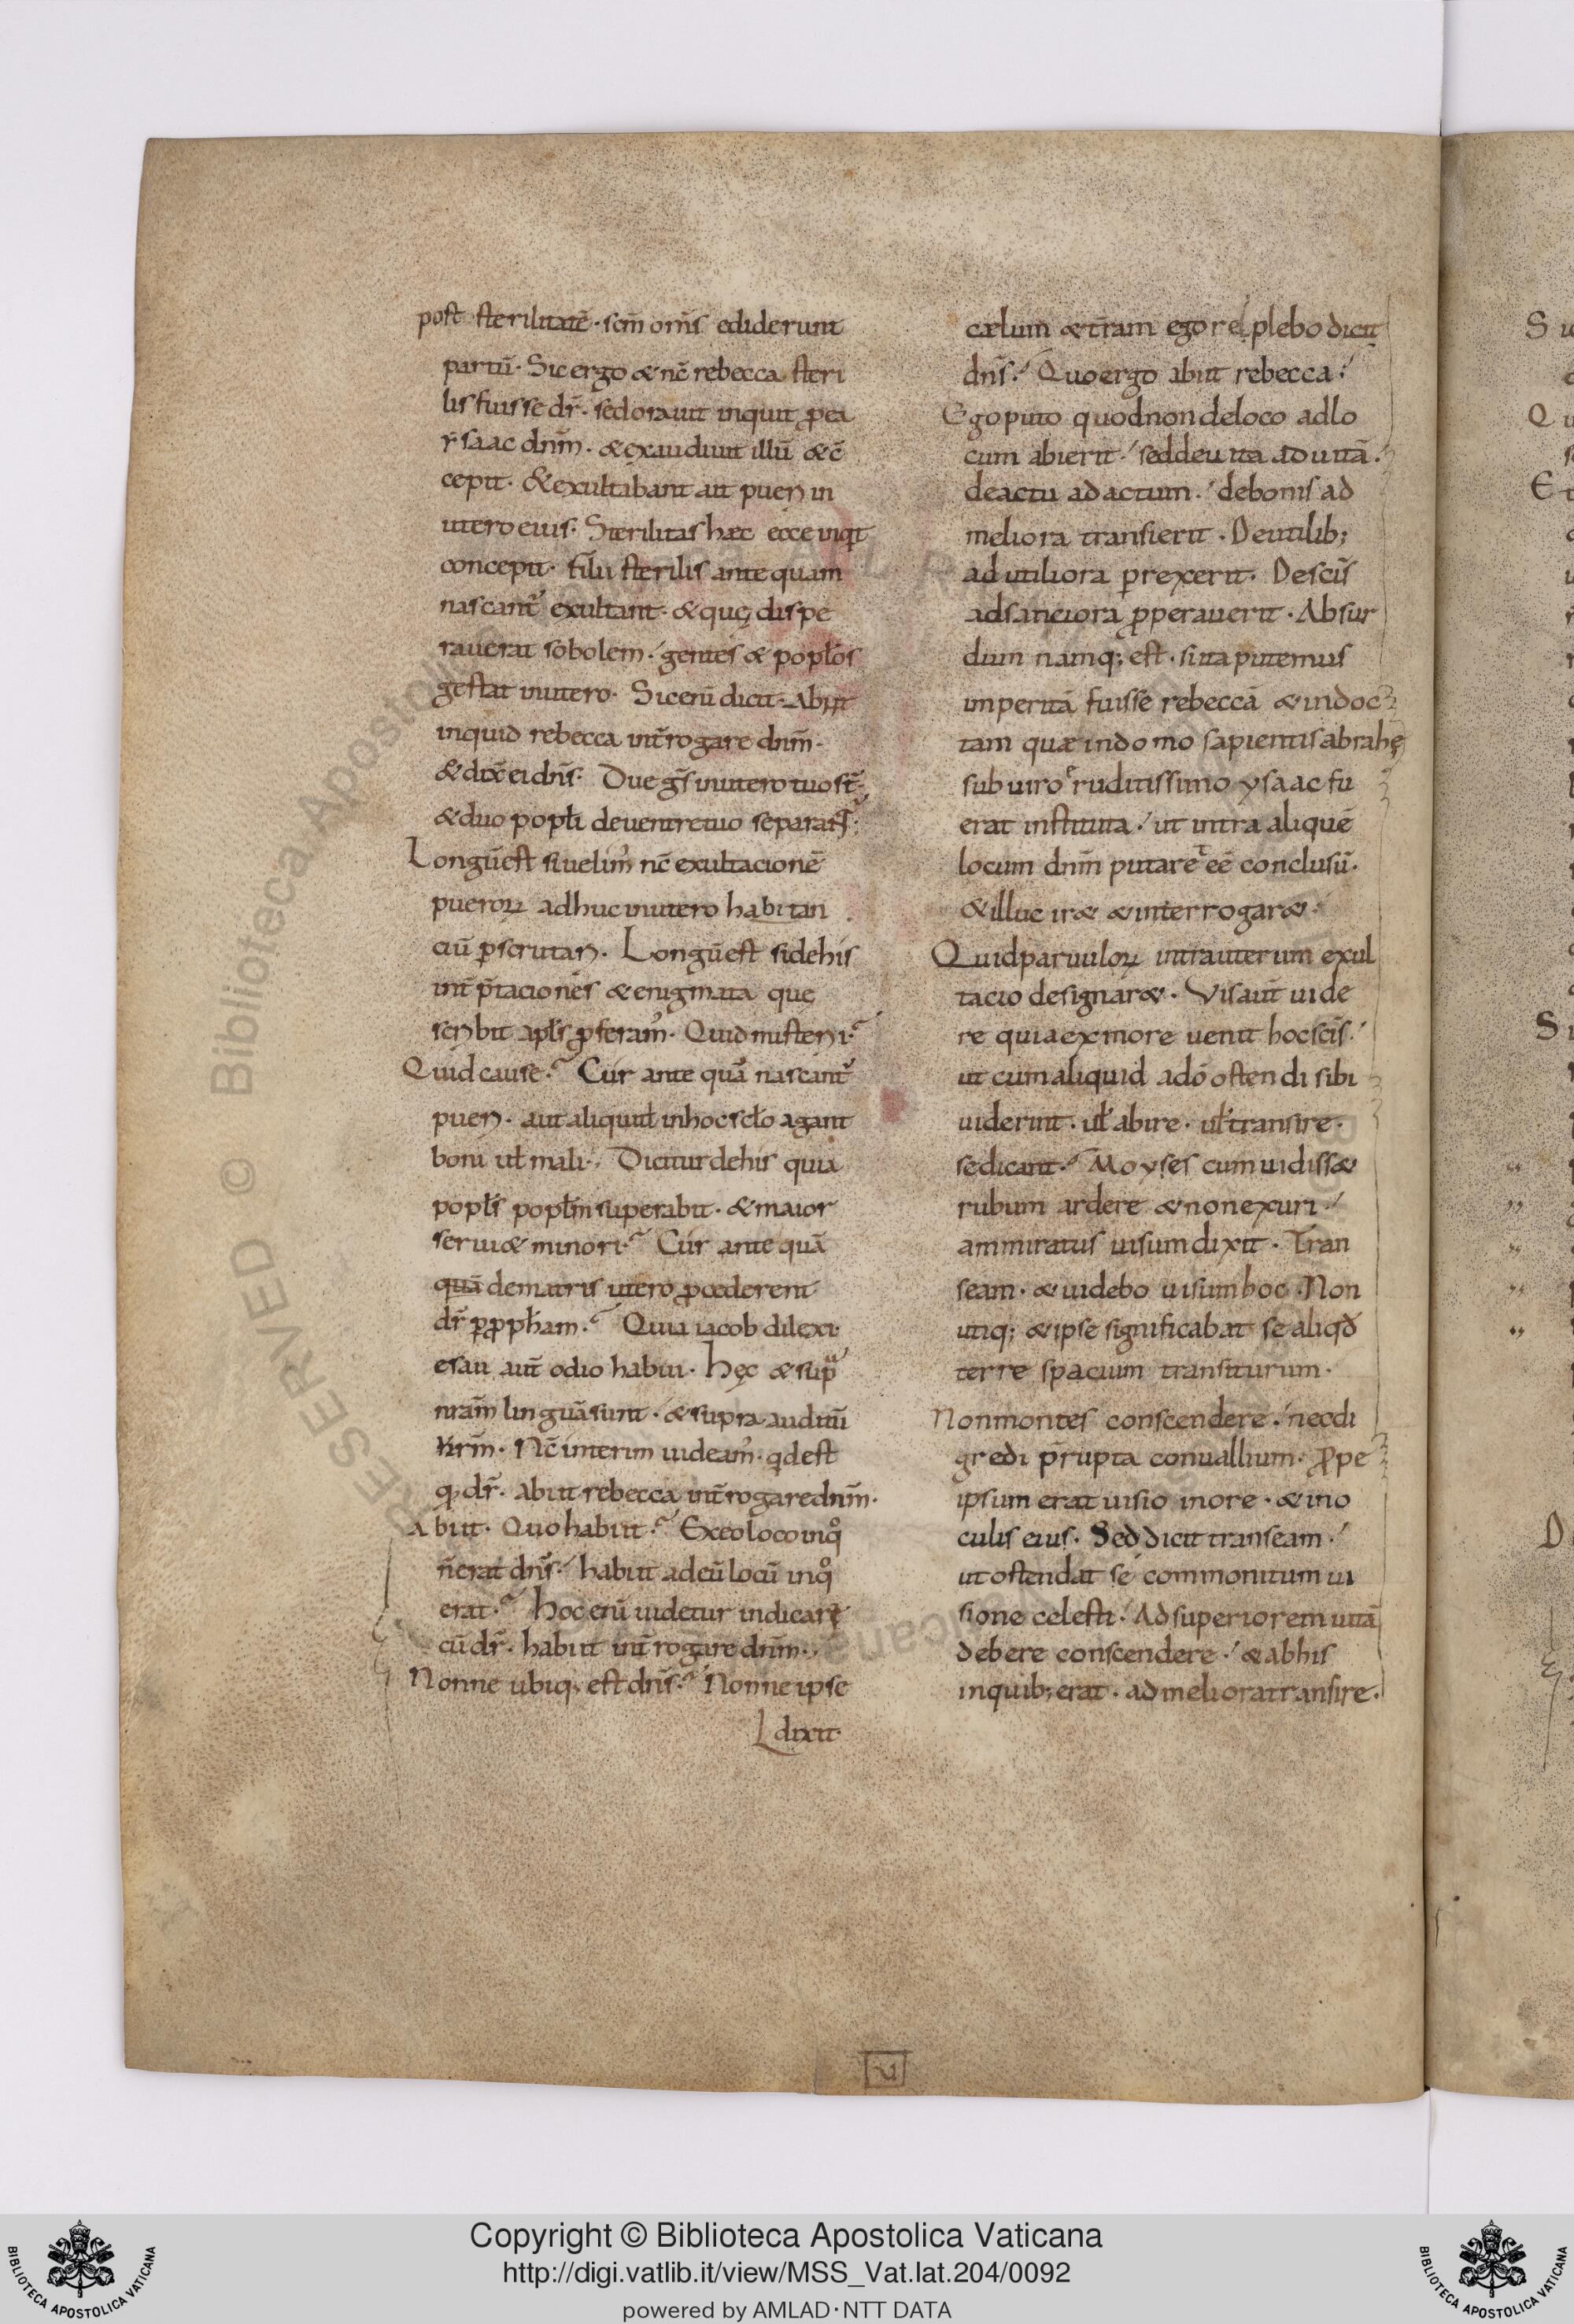 post sterilitatē · scm̄ om̄s ediderunt
partū · Sic ergo & nc̄ rebecca steri
lis fuisse dr̄ · sed orauit inquit ꝓ ea
ẏsaac dnm̄ · & exaudiuit illū & c̄
cepit · & exultabant ait pueri in
utero eius · Sterilitas hæc ecce inqt
concepit · filii sterilis ante quam
nascant᷑ exultant · & quę dispe
rauerat sobolem · gentes & popl̄os
gestat in utero · Sic enī dicit · Abiit
inquid rebecca int̄rogare dnm̄ ·
& dix̄ ei dns̄ · Due gs̄ in utero tuo st̄ ·
& duo popl̄i de uentre tuo separat᷑ ·
Longū est si uelim᾽ nc̄ exultacionē
pueroꝝ adhuc in utero habitan
ciū ꝑscrutari · Longū est si de his
int̄p̄taciones & enigmata que
scribit apl̄s ꝓferam᾽ · Quid misterii ·
Quid cause · Cur ante quā nascant᷑
pueri · aut aliquid in hoc scl̄o agant
boni ul̄ mali · Dicitur de his quia
popl̄s popl̄m superabit · & maior
seruiæ minori · Cur ante quā
quā de matris utero ꝓcederent
dr̄ ꝑ ꝓph̄am · Quia iacob dilexi
esau aut̄ odio habui · hęc & sup̄
nr̄am linguā sunt · & supra auditū
nr̄m · Nc̄ interim uideam᾽ · qd est
qđ dr̄ · abiit rebecca int̄rogare dnm̄ ·
Abiit · Quo habiit · Ex eo loco in q̊
n̄ erat dns̄ · habiit ad eū locū in q̊
erat · hoc enī uidetur indicare
cū dr̄ · habiit int̄rogare dnm̄ ·
Nonne ubiq; est dns̄ · Nonne ipse
dixit ·
cælum & t̄ram ego repplebo dicit
dns̄ · Quo ergo abiit rebecca ·
Ego puto quod non de loco ad lo
cum abierit · sed de uita ad uitā ·
de actu ad actum · de bonis ad
meliora transierit · De utilib;
ad utiliora ꝑrexerit · De scīs
ad sanctiora ꝓperauerit · Absur
dum namq; est · si ita putemus
imperitā fuisse rebeccā & indoc
tam quæ in domo sapientis abrahę
sub uiro eruditissimo ysaac fu
erat instituta · ut intra aliquē
locum dnm̄ putaret eē conclusū ·
& illuc iræ & interrogaræ ·
Quid paruuloꝝ intra uterum exul
tacio designaræ · Vis aut̄ uide
re quia ex more uenit hoc scīs ·
ut cum aliquid a dō ostendi sibi
uiderint · ul̄ abire · ul̄ transire ·
se dicant · Moyses cum uidissæ
rubum ardere & non exuri ·
ammiratus uisum dixit · Tran
seam · & uidebo uisum hoc · Non
utiq; & ipse significabat se aliqđ
terre spacium transiturum ·
Non montes conscendere · nec di
gredi p̄rupta conuallium · Prope
ipsum erat uisio in ore · & in o
culis eius · Sed dicit transeam ·
ut ostendat se commonitum ui
sione celesti · Ad superiorem uitā
debere conscendere · & ab his
in quib; erat · ad meliora transire ·
V
RESERVED © Biblioteca Apostolica Vaticana
Copyright © Biblioteca Apostolica Vaticana
http://digi.vatlib.it/view/MSS_Vat.lat.204/0092
powered by AMLAD·NTT DATA
BIBLIOTECA APOSTOLICA VATICANA
BIBLIOTECA APOSTOLICA VATICANA